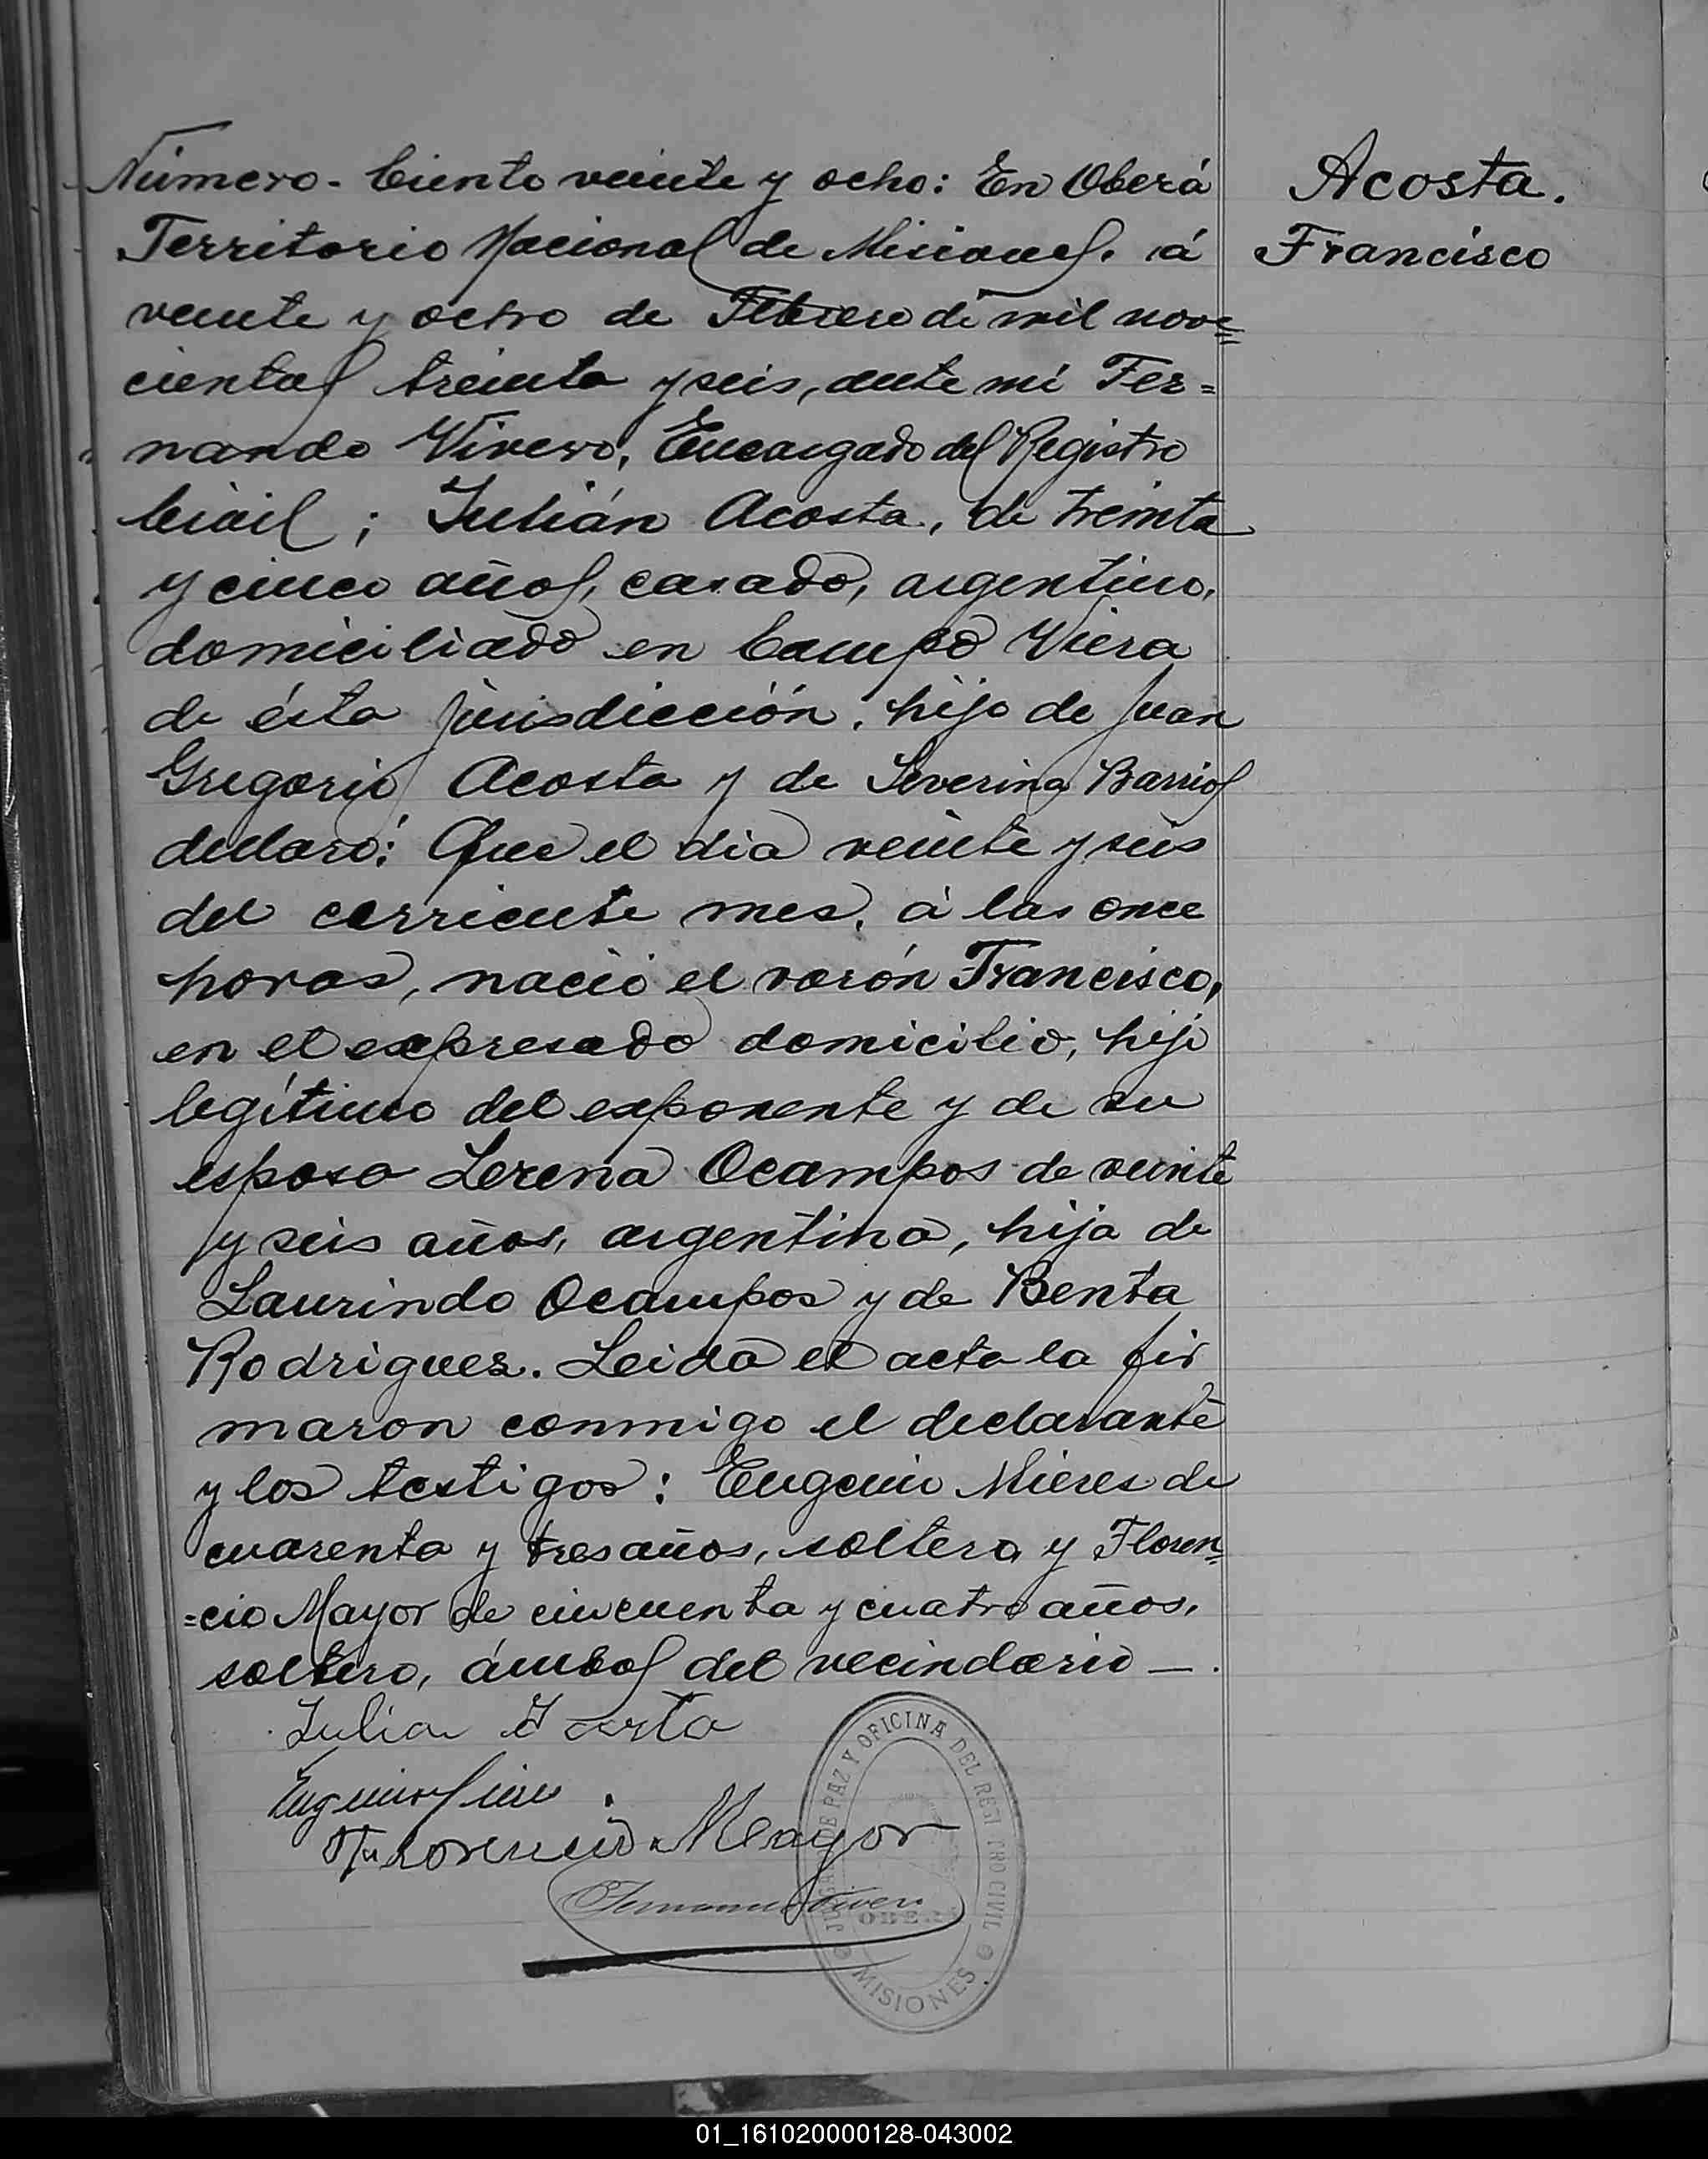 Número - Ciento veinte y ocho: En Oberá
Territorio Nacional de Misiones. á
veinte y ocho de Febrero de mil nove=
cientos treinta y seis, ante mi Fer=
nando Vivero, Encargado del Registro
Civil; Julián Acosta, de treinta
y cinco años, casado, argentino,
domiciliado en Campo Viera
de ésta jurisdicción, hijo de Juan
Gregorio Acosta y de Severina Barrios
declaró: Que el dia veinte y seis
del corriente mes, á las once
horas, nació el varón Francisco,
en el expresado domicilio, hijo
legítimo del exponente y de su
esposa Lerena Ocampos de veinte
y seis años, argentina, hija de
Laurindo Ocampos y de Benta
Rodriguez. Leida el acta la fir
maron conmigo el declarante
y los testigos: Eugenio Mieres de
cuarenta y tres años, soltero, y Floren=
=cio Mayor de cincuenta y cuatro años,
soltero, ámbos del vecindario —.
Acosta.
Francisco
Julian Acosta
Eugenio Mieres
Florencio Mayor
Fernando Vivero
JUZGADO DE PAZ Y OFICINA DEL REGISTRO CIVIL
OBERÁ
MISIONES
01_161020000128-043002